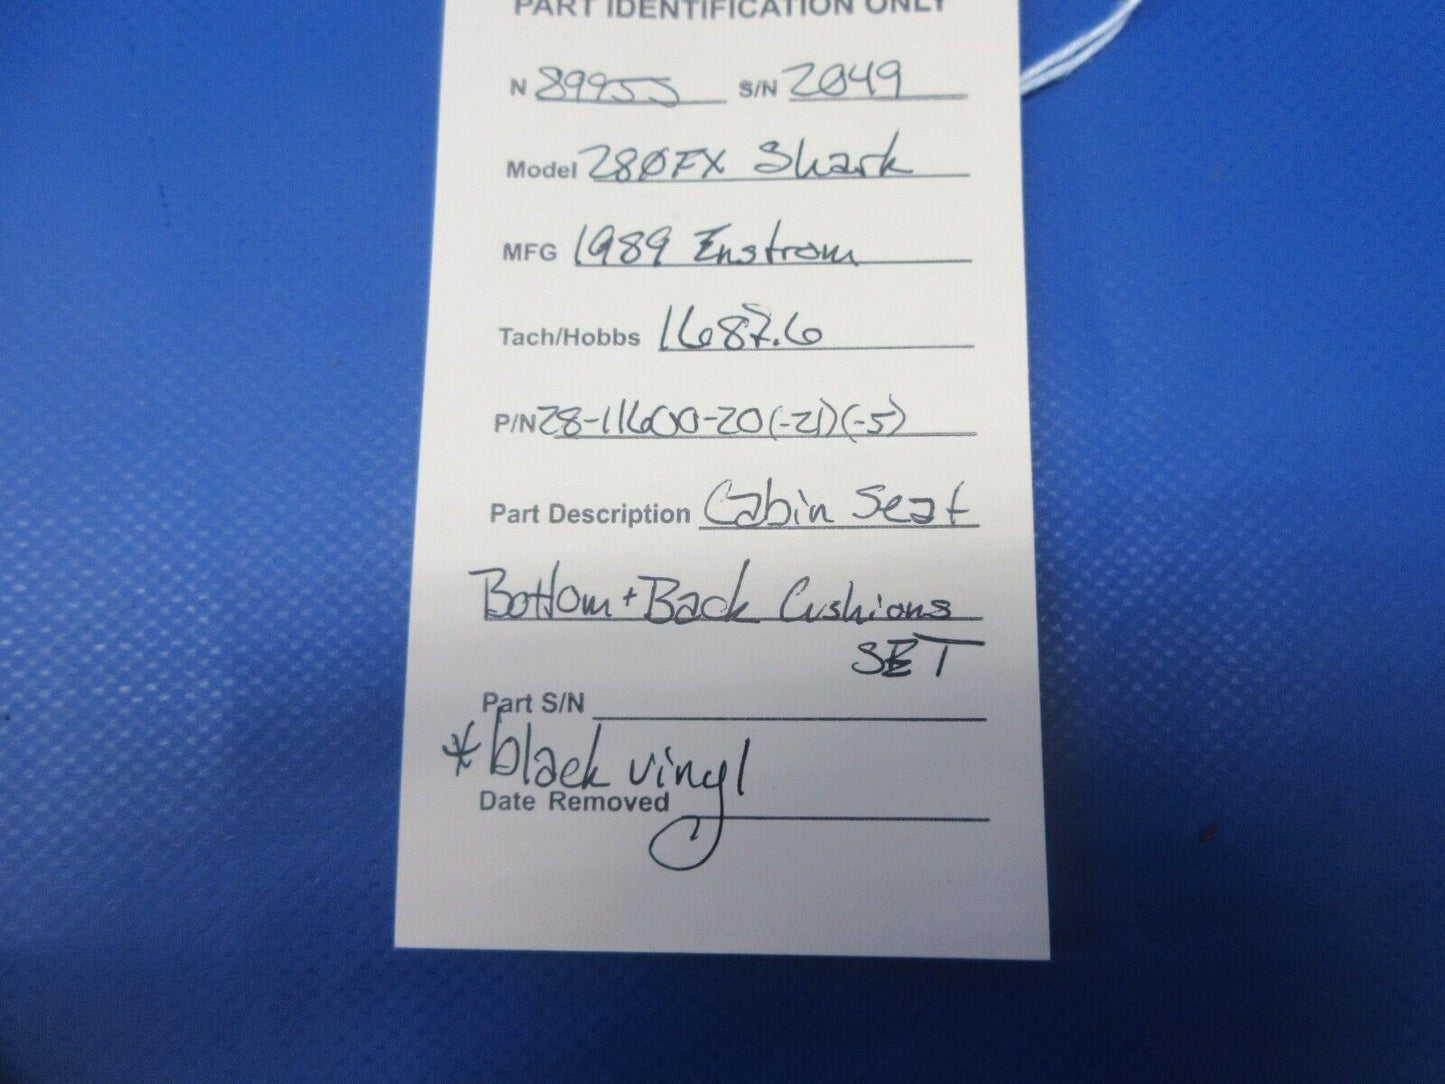 PART IDENTIFICATION ONLY
N 89955 S/N 2049
Model 280FX Shark
MFG 1989 Enstrom
Tach/Hobbs 1687.6
P/N 28-11600-20(-21)(-5)
Part Description Cabin Seat
Bottom + Back Cushions
SET
Part S/N
* black vinyl
Date Removed